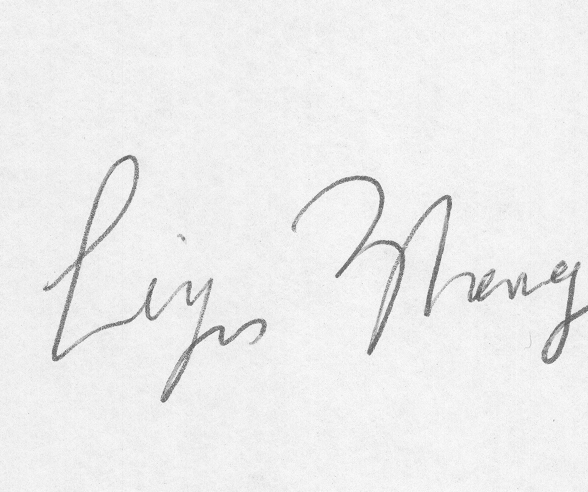 Liyu Zheng